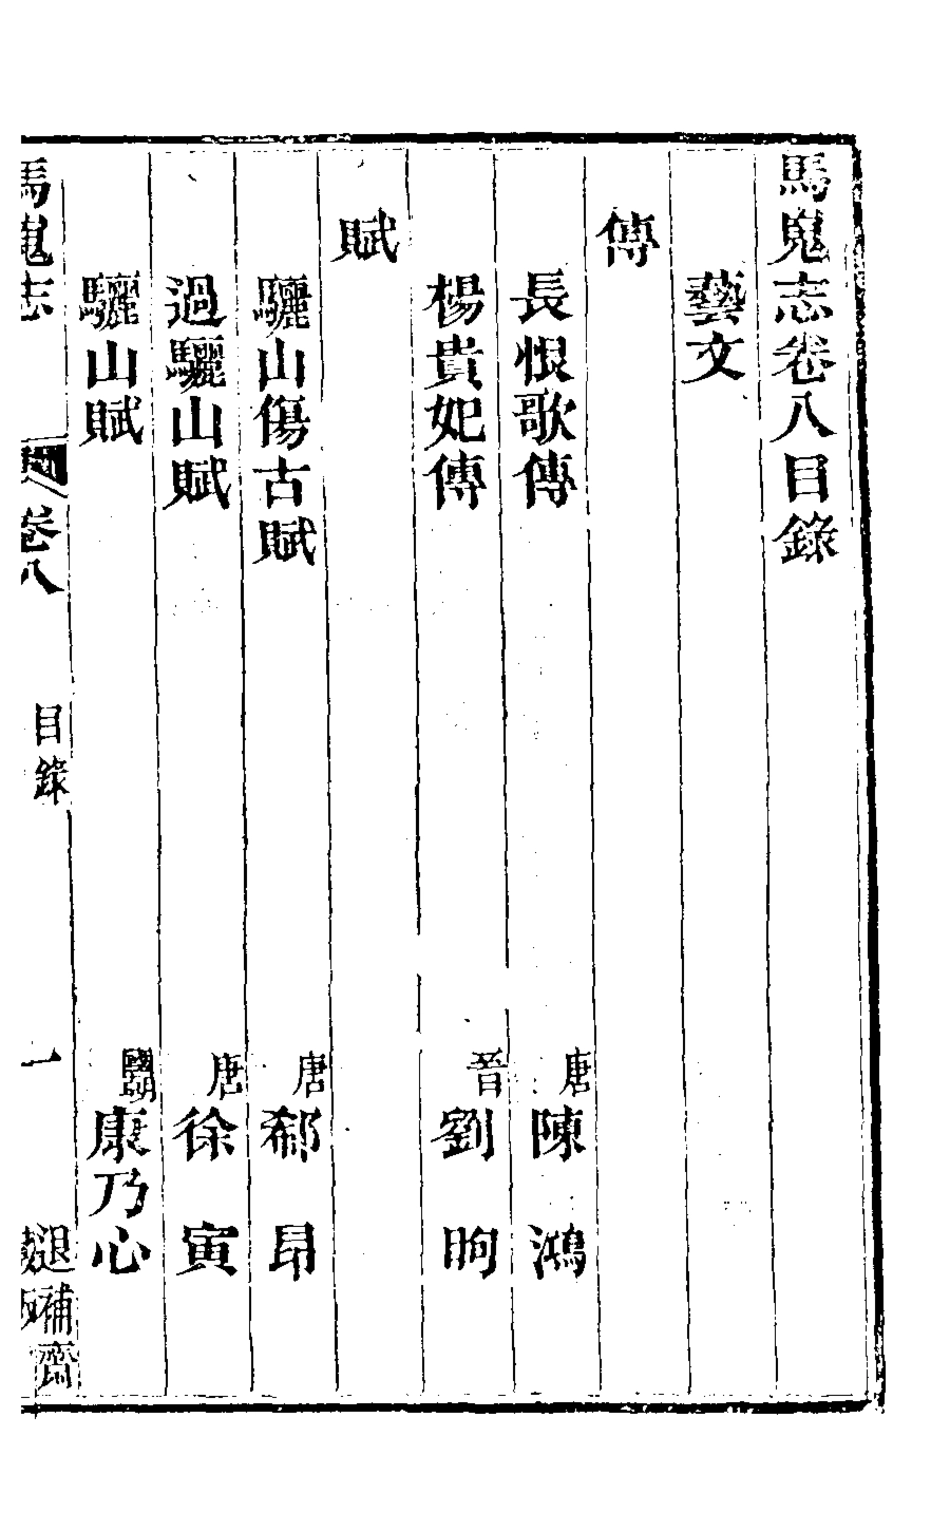 馬嵬志卷八目錄
藝文
傳
長恨歌傳　唐陳鴻
楊貴妃傳　晉劉昫
賦
驪山傷古賦　唐郗昂
過驪山賦　唐徐寅
驪山賦　國朝康乃心
馬嵬志　卷八　目錄　一　退補齋藏板